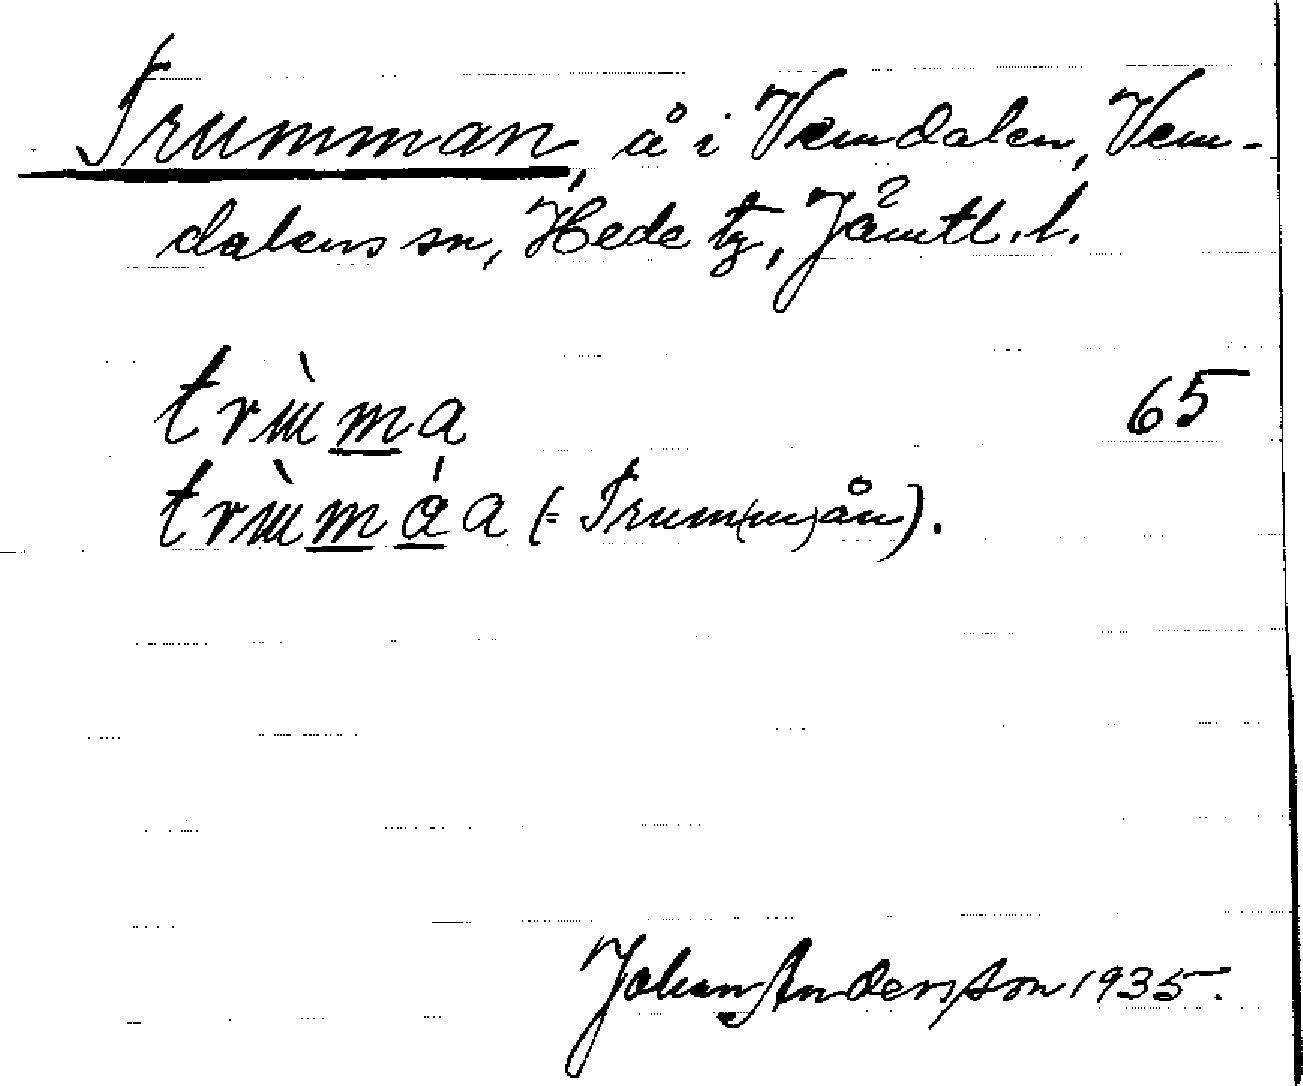 Trumman, å i Vemdalen, Vem-
dalens sn, Hede tg, Jämtl. l.
65
(= Trum(m)ån).
Johan Andersson 1935.